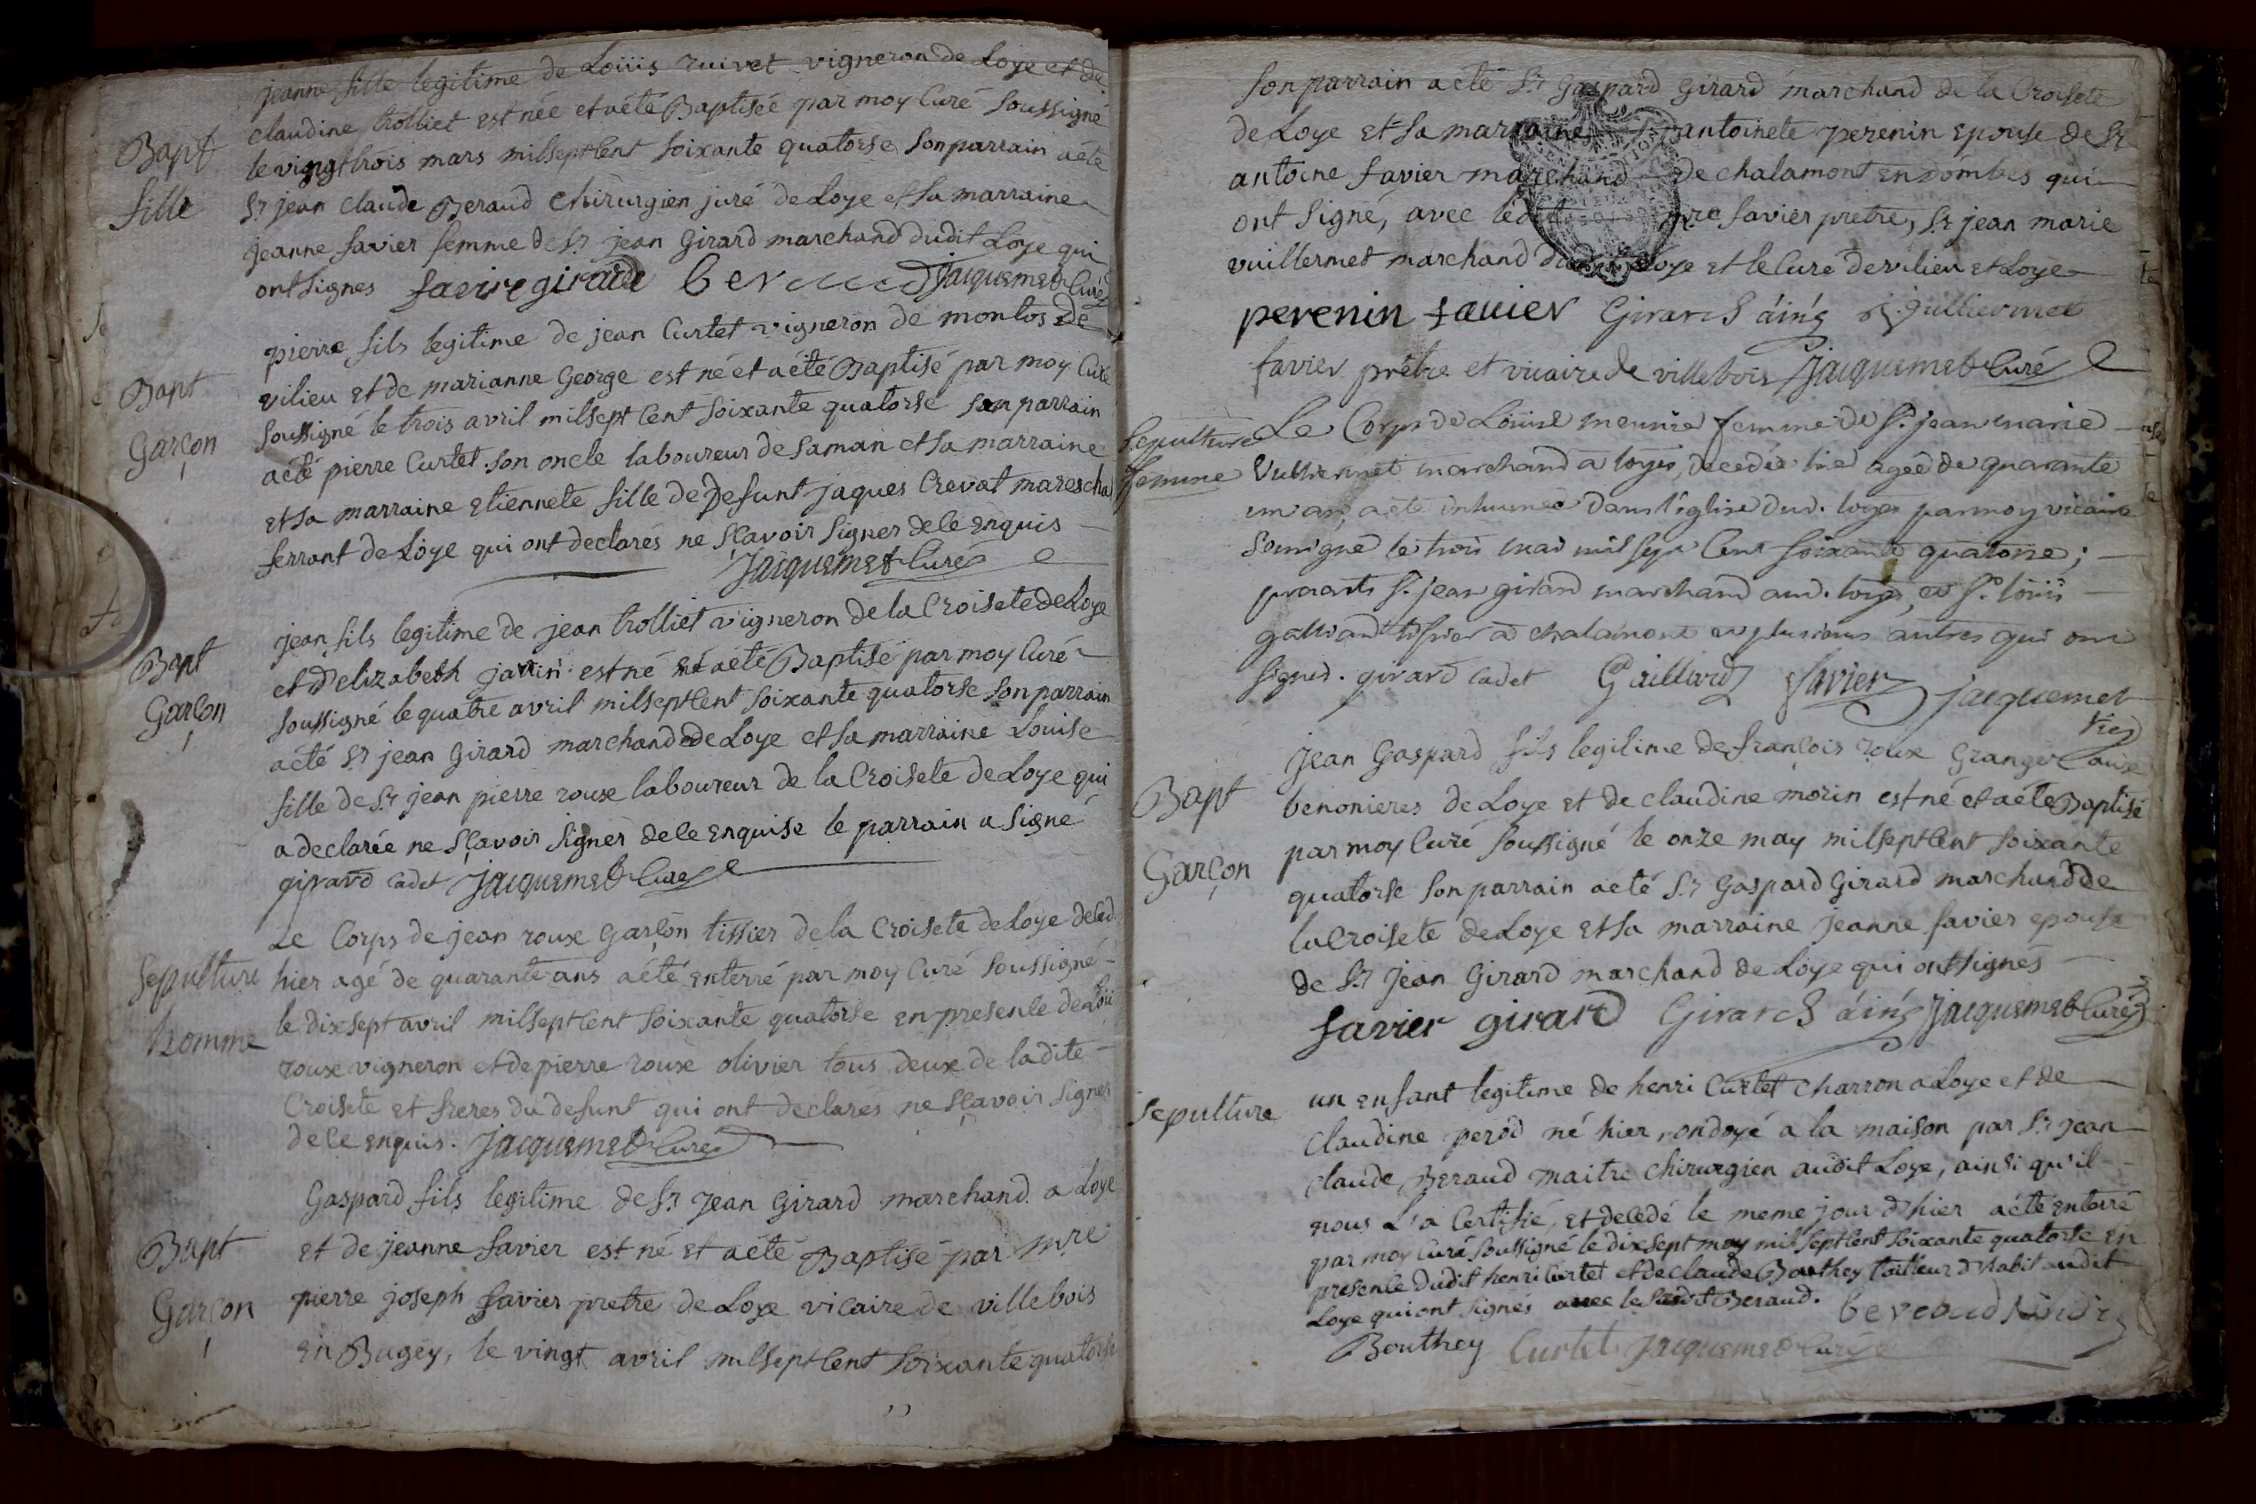 jeanne fille legitime de Loüis ruivet vigneron de Loye et de
claudine trolliet est née et aété Baptisée par moy Curé soussigné
Bapt
le vingttrois mars milseptCent soixante quatorse son parrain aété
fille
Sr jean claude Beraud chirurgien juré de Loye et sa marraine
jeanne favier femme de Sr jean Girard marchand dudit Loye qui
ont signes favier girard beraud jacquemet Curé
pierre fils legitime de jean Curtet vigneron de montos de
vilieu et de marianne George est né et aété Baptisé par moy Curé
Bapt
soussigné le trois avril milsept Cent soixante quatorse son parrain
Garçon
aété pierre Curtet son oncle laboureur de saman et sa marraine
et sa marraine etiennete fille de defunt jaques Crevat marescha
ferrant de Loye qui ont declarés ne sçavoir signer dele enquis
jacquemet Curé
jean fils legitime de jean trolliet vigneron de la Croisete de Loye
Bapt
et delizabeth janin est né et aété Baptisé par moy Curé
Garçon
soussigné le quatre avril milseptCent soixante quatorse son parrain
aété Sr jean Girard marchand de Loye et sa marraine Louise
fille de Sr jean pierre roux laboureur de la Croisete de Loye qui
a declarée ne sçavoir signer dele enquise le parrain a signé
girard cadet jacquemet Curé
Le Corps de jean roux Garçon tissier de la Croisete de Loye deced
Sepulture
hier agé de quarante ans aété enterré par moy Curé soussigné
homme
le dixsept avril milseptCent soixante quatorse en presence de Loüi
roux vigneron et de pierre roux olivier tous deux de la dite
Croisete et freres du defunt qui ont declarés ne sçavoir signer
dele enquis. jacquemet Curé
Gaspard fils legitime de Sr jean Girard marchand a Loye
Bapt
et de jeanne favier est né et aété Baptisé par mre
Garçon
pierre joseph favier pretre de Loye vicaire de villebois
en Bugey, le vingt avril milseptCent soixante quatorse
son parrain aété Sr Gaspard Girard marchand de la Croisete
de Loye et sa marraine antoinete perenin epouse de Sr
antoine favier marchand de chalamont en dombes qui
ont signé, avec ledit mre favier pretre, Sr jean marie
vuillermet marchand Loye et le Curé de vilieu et Loye
perenin favier Girard áiné j. j. Vuilliermet
favier prêtre et vicaire de villebois jacquemet Curé
Sepulture
Le Corps de Louise meunié femme de Sr jean marie
femme
Vulliermet marchand a loyes, decedée hier agée de quarante
un an, aété inhumée dans l'église dud. loyes par moy vicaire
soussigné le trois mai mil sept Cent soixante quatorse;
presents Sr jean girard marchand aud. loyes, et Sr loüis
galliard a chalamont et plusieurs autres qui ont
signés. girard cadet Gaillard favier jacquemet
vic
jean Gaspard fils legitime de françois roux Granger aux
Bapt
benonieres de Loye et de claudine morin est né et aété Baptisé
par moy Curé soussigné le onze may milseptCent soixante
Garçon
quatorse son parrain aété Sr Gaspard Girard marchand de
la Croisete de Loye et sa marraine jeanne favier epouse
de Sr jean Girard marchand de Loye qui ont signés
favier girard Girard áiné jacquemet Curé
un enfant legitime de henri Curtet charron a Loye et de
sepulture
claudine perod né hier, ondoyé a la maison par Sr jean
claude Beraud maitre chirurgien audit Loye, ainsi qu'il
nous l'a Certifié, et decedé le meme jour d'hier aété enterré
par moy Curé soussigné le dixsept may milseptCent soixante quatorse en
presence dudit henri Curtet et de claude Bouthey tailleur d'habit audit
Loye qui ont signés avec le susdit Beraud. beraud
Bouthey Curtet jacquemet Curé